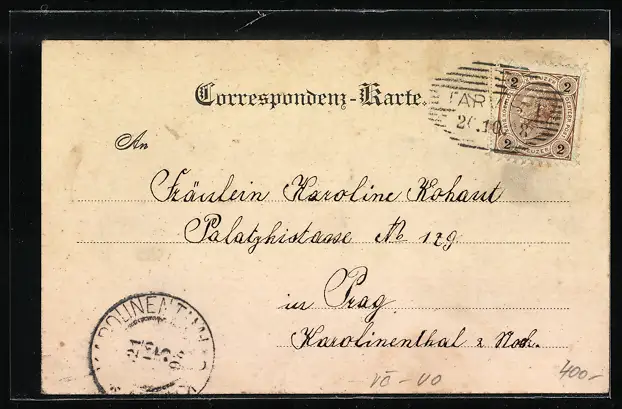 Correspondenz-Karte.
TARV
2 2
26.10.98
2 2
An
Fräulein Karoline Kohaut
Palatzkistrasse № 129
in Prag
Karolinenthal 2 Stock.
KAROLINENTHAL
400-